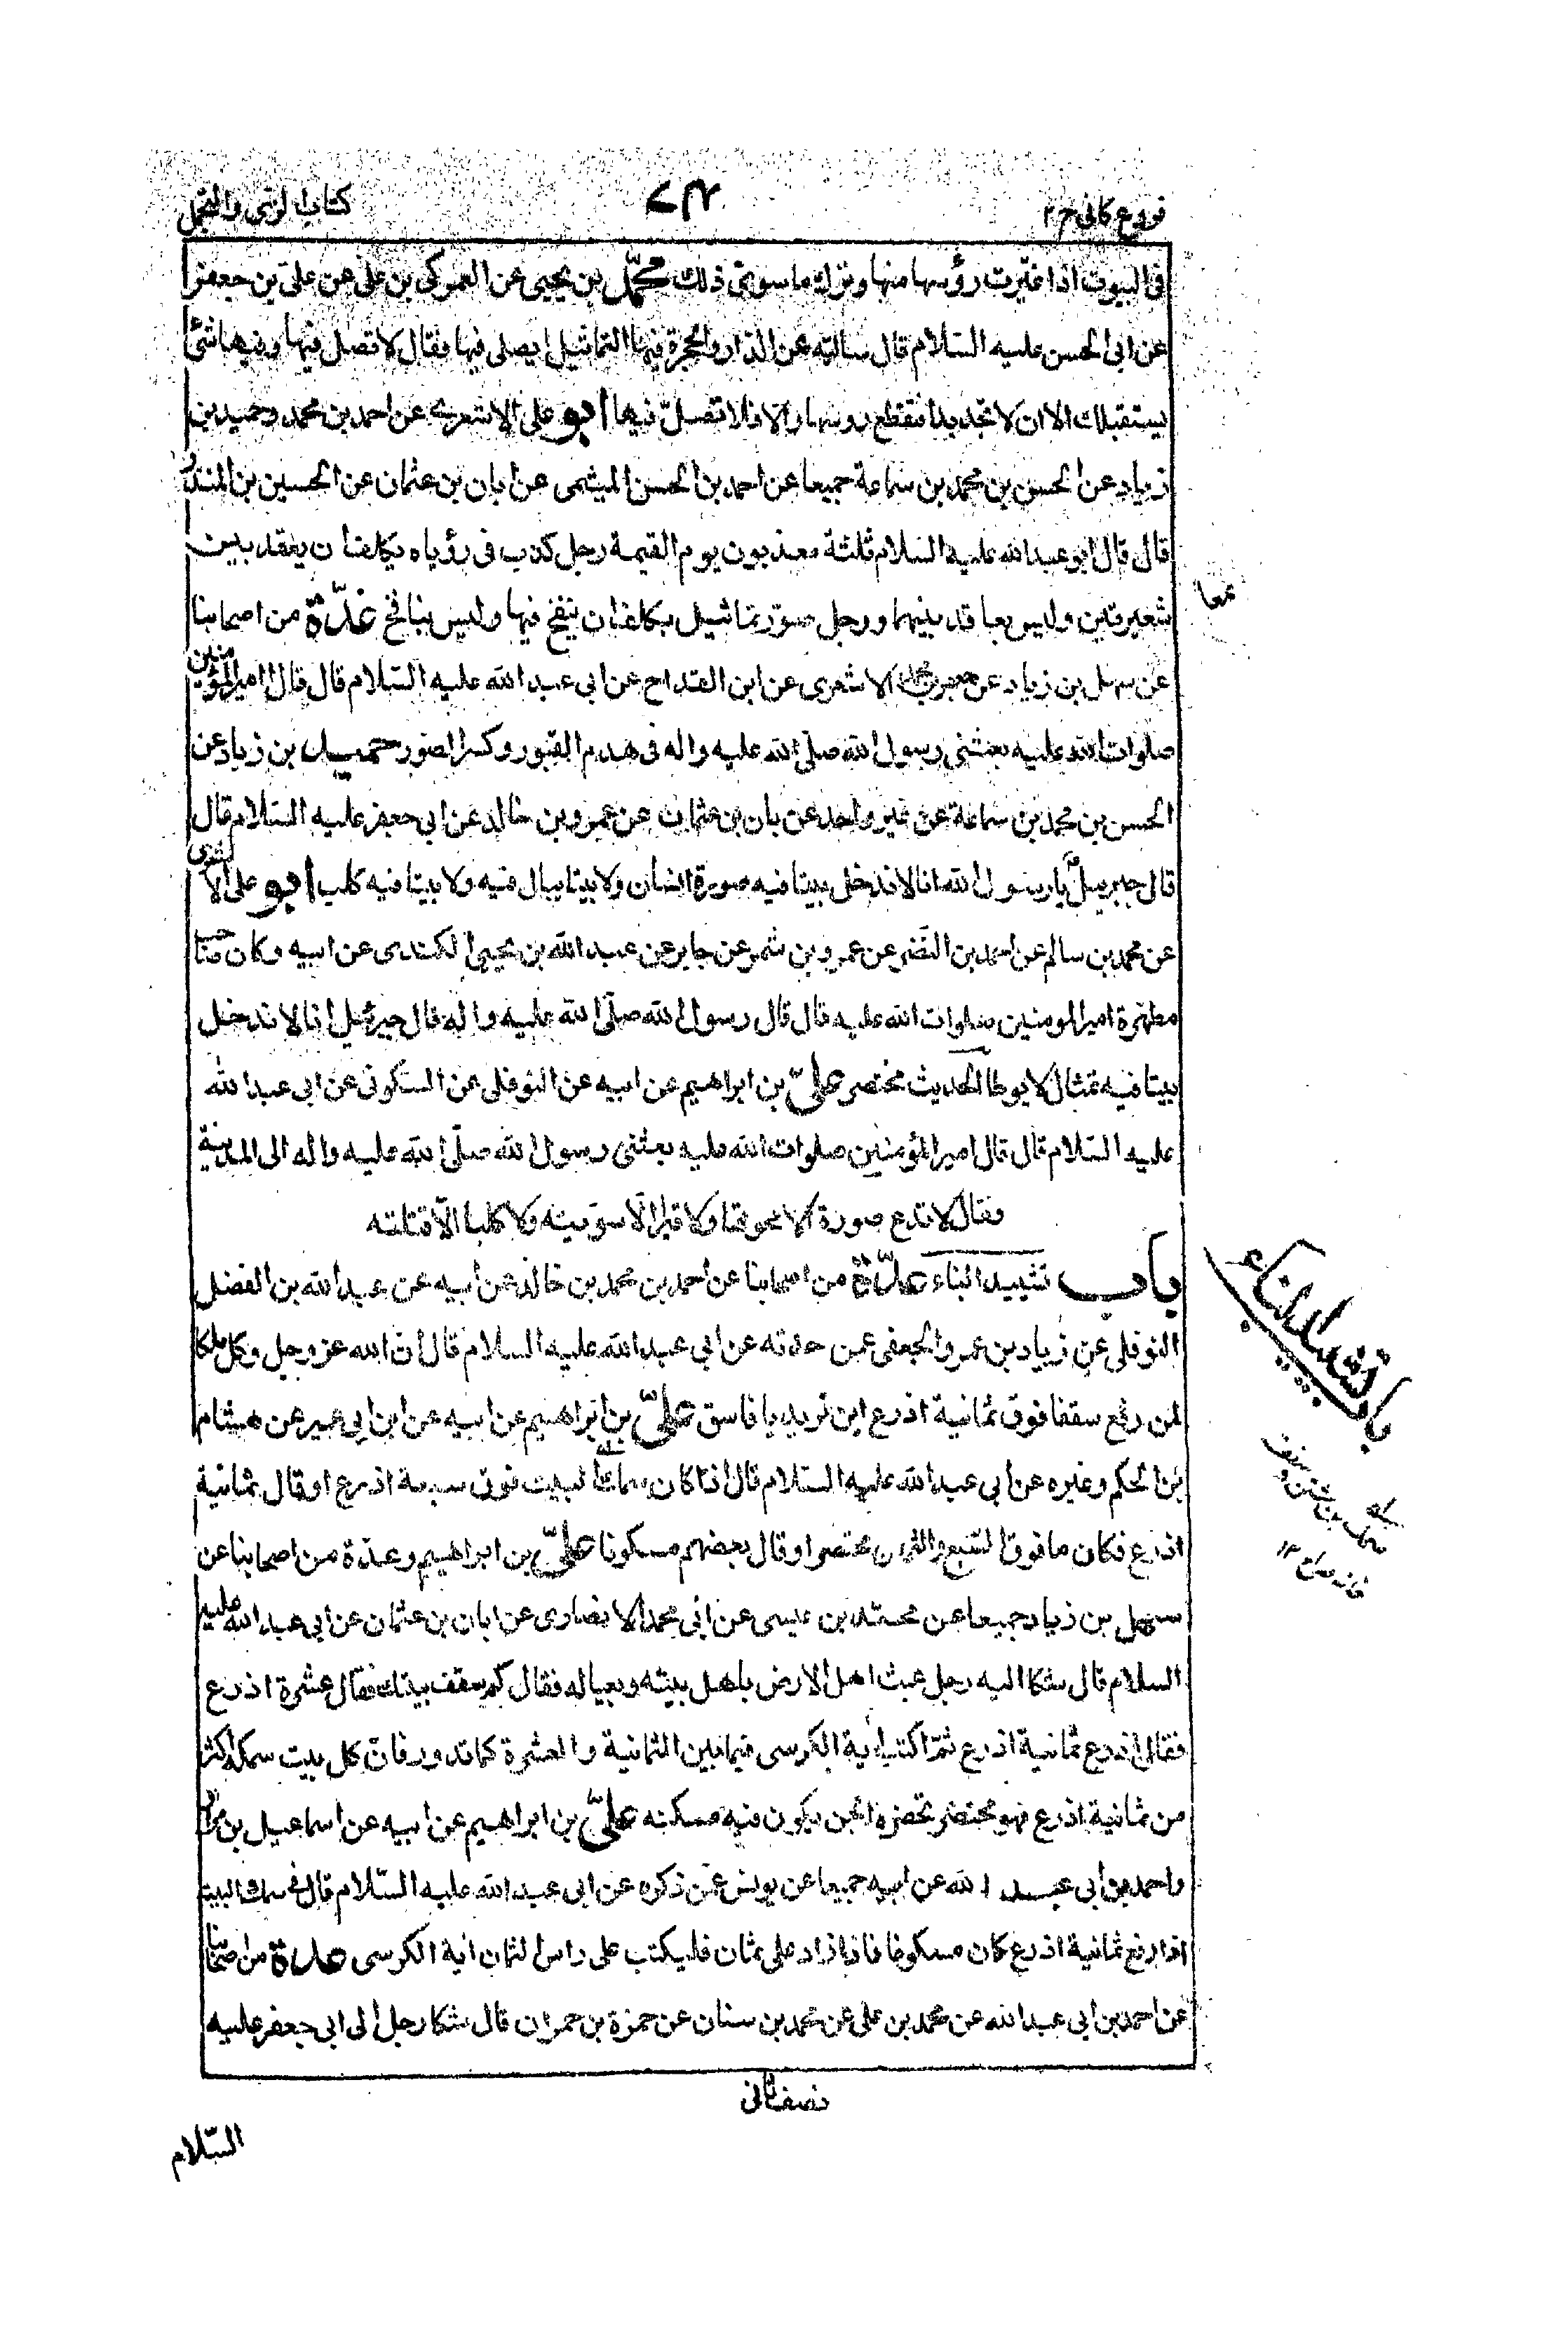 فروع كافي ج ٢
كتاب الزي والتجمل
في البيوت اذا غيّرت رؤسها منها وترك ما سوى ذلك محمّد بن يحيى عن العمركي بن علي عن علي بن جعفر
عن ابي الحسن عليه السّلام قال سالته عن الدار والحجرة فيها التماثيل ايصلى فيها فقال لا تصل فيها وفيها شئ
يستقبلك الا ان لا تجد بدا فتقطع روسها والا فلا تصلّ فيها ابو علي الاشعري عن احمد بن محمد وحميد بن
زياد عن الحسن بن محمد بن سماعة جميعا عن احمد بن الحسن الميثمي عن ابان بن عثمان عن الحسين بن المنذر
قال قال ابو عبد الله عليه السلام ثلثة معذبون يوم القيمة رجل كذب في رؤياه يكلف ان يعقد بين
شعيرتين وليس بعاقد بينهما ورجل صوّر تماثيل يكلف ان ينفخ فيها وليس بنافخ عدّة من اصحابنا
عن سهل بن زياد عن جعفر بن محمد الاشعري عن ابن القداح عن ابي عبد الله عليه السّلام قال قال امير المؤمنين
صلوات الله عليه بعثني رسول الله صلّى الله عليه واله في هدم القبور وكسر الصور حميد بن زياد عن
الحسن بن محمد بن سماعة عن غير واحد عن بان بن عثمان عن عمرو بن خالد عن ابي جعفر عليه السّلام قال
قال جبرئيل يا رسول الله انا لا ندخل بيتا فيه صورة انسان ولا بيتا يبال فيه ولا بيتا فيه كلب ابو علي الاشعري
عن محمد بن سالم عن احمد بن النّضر عن عمرو بن شمر عن جابر عن عبد الله بن يحيى الكندي عن ابيه وكان صاحب
مطهرة امير المومنين صلوات الله عليه قال قال رسول الله صلّى الله عليه واله قال جبرئيل انا لا ندخل
بيتا فيه تمثال لا يوطا الحديث مختصر عليّ بن ابراهيم عن ابيه عن النوفلي عن السّكوني عن ابي عبد الله
عليه السّلام قال قال امير المؤمنين صلوات الله عليه بعثني رسول الله صلّى الله عليه واله الى المدينة
فقال لا تدع صورة الا محوتها ولا قبرا الّا سوّيته ولا كلبا الّا قتلته
باب تشييد البناء عدّة من اصحابنا عن احمد بن محمد بن خالد عن ابيه عن عبد الله بن الفضل
النوفلي عن زياد بن عمرو الجعفي عمن حدثه عن ابي عبد الله عليه السلام قال ان الله عز وجل وكل ملكا
لمن رفع سقفا فوق ثمانية اذرع اين تريد يا فاسق عليّ بن ابراهيم عن ابيه عن ابن ابي عمير عن هشام
بن الحكم وغيره عن ابي عبد الله عليه السّلام قال اذا كان سمك البيت فوق سبعة اذرع او قال ثمانية
اذرع فكان ما فوق السّبع والثمان محتضرا وقال بعضهم مسكونا عليّ بن ابراهيم وعدّة من اصحابنا عن
سهل بن زياد جميعا عن محمّد بن عيسى عن ابي محمد الانصاري عن ابان بن عثمان عن ابي عبد الله عليه
السلام قال شكا اليه رجل عبث اهل الارض باهل بيته وبعياله فقال كم سقف بيتك فقال عشرة اذرع
فقال اذرع ثمانية اذرع ثمّ اكتب اية الكرسي فيما بين الثمانية والعشرة كما تدور فان كل بيت سمكه اكثر
من ثمانية اذرع فهو محتضر تحضره الجن يكون فيه مسكنه عليّ بن ابراهيم عن ابيه عن اسماعيل بن مرار
واحمد بن ابي عبد الله عن ابيه جميعا عن يونس عمّن ذكره عن ابي عبد الله عليه السّلام قال في سمك البيت
اذا رفع ثمانية اذرع كان مسكونا فاذا زاد على ثمان فليكتب على راس الثمان اية الكرسي عدة من اصحابنا
عن احمد بن ابي عبد الله عن محمد بن علي عن محمد بن سنان عن حمزة بن حمران قال شكا رجل الى ابي جعفر عليه
نصف ثاني
السّلام
باب تشييد البناء